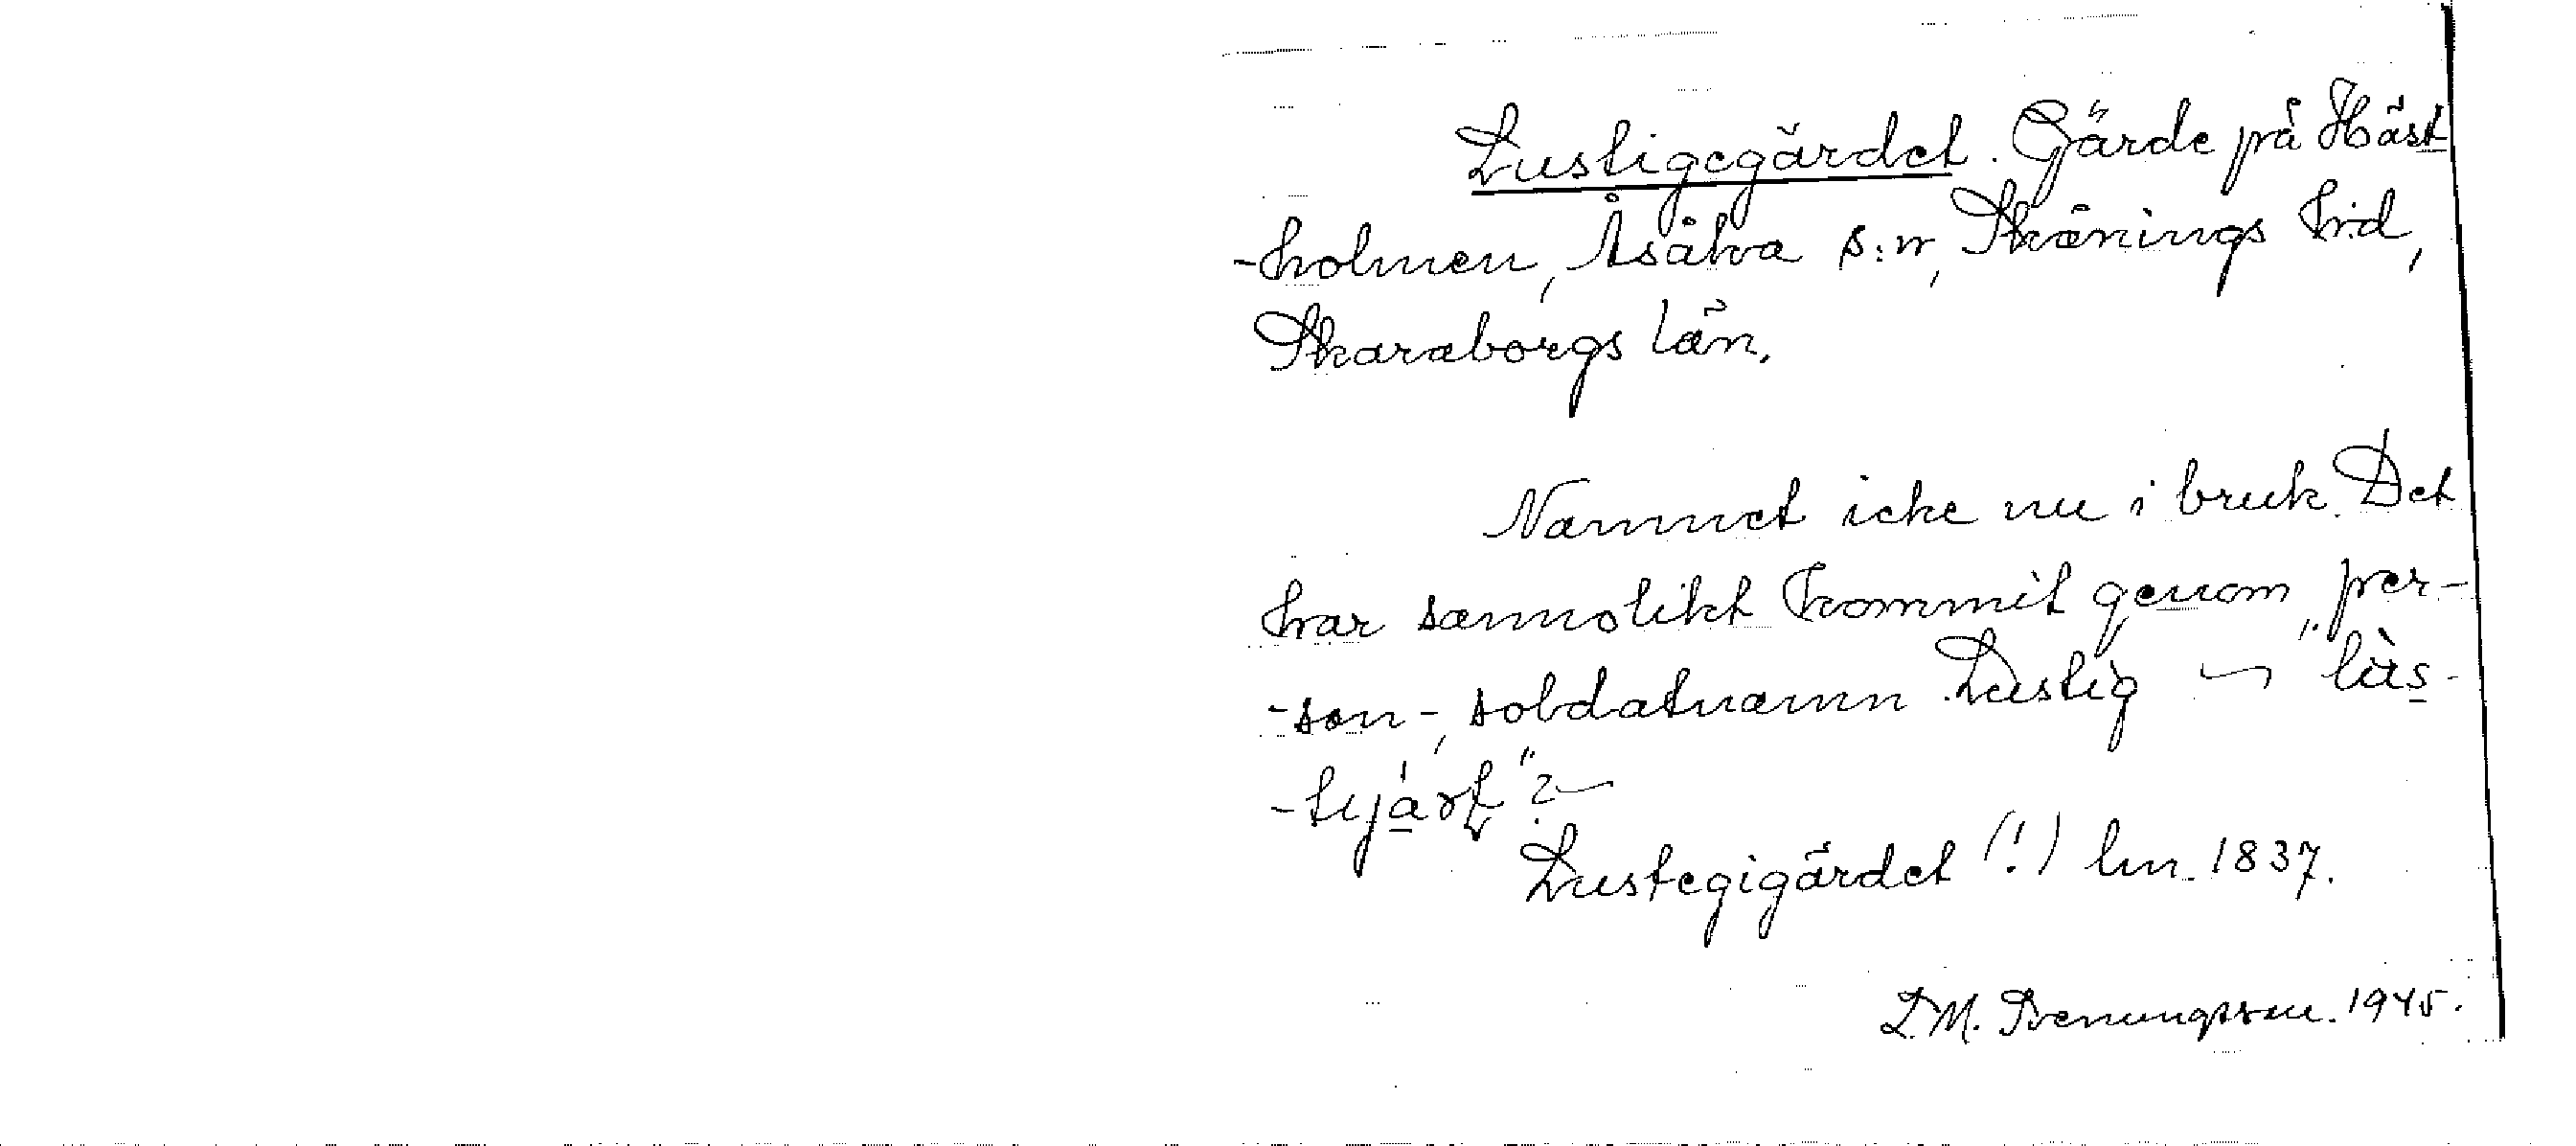 Lustigegärdet. Gärde på Häst-
-holmen, Åsåka s:n, Skånings hd,
Skaraborgs län.
Namnet icke nu i bruk. Det
har sannolikt kommit genom per-
-son-, soldatnamn Lustig — "lùs-
-tijáɽt"? —
Lustegigärdet (!) lm. 1837.
L. M. Svenungsson. 1945.